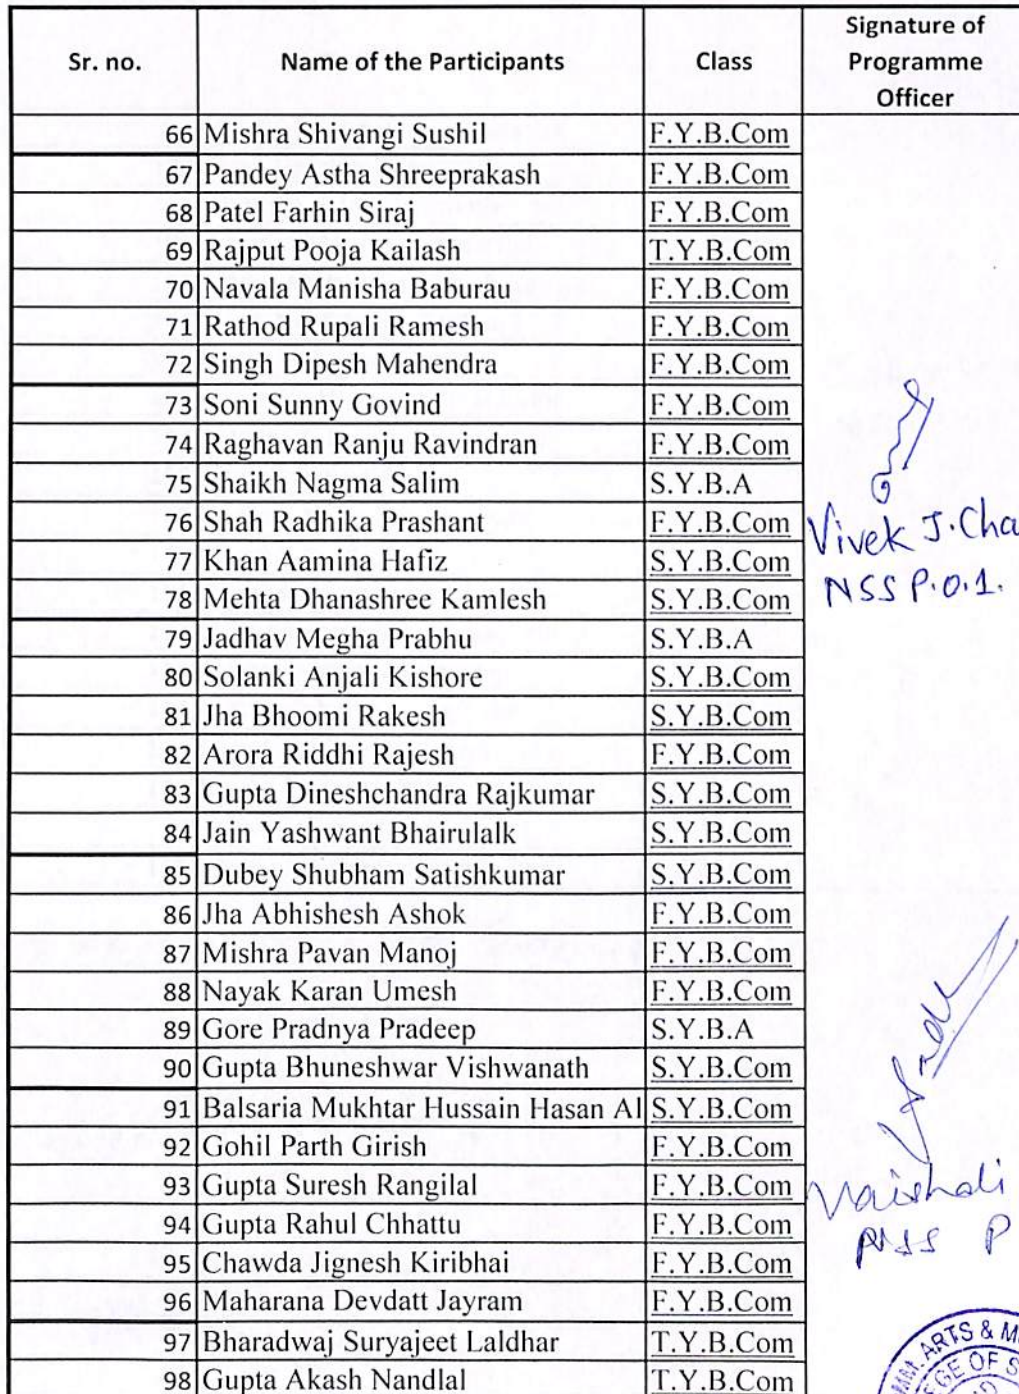 Sr. no. Name of the Participants Class Signature of Programme Officer
66 Mishra Shivangi Sushil F.Y.B.Com
67 Pandey Astha Shreeprakash F.Y.B.Com
68 Patel Farhin Siraj F.Y.B.Com
69 Rajput Pooja Kailash T.Y.B.Com
70 Navala Manisha Baburau F.Y.B.Com
71 Rathod Rupali Ramesh F.Y.B.Com
72 Singh Dipesh Mahendra F.Y.B.Com
73 Soni Sunny Govind F.Y.B.Com
74 Raghavan Ranju Ravindran F.Y.B.Com
75 Shaikh Nagma Salim S.Y.B.A
76 Shah Radhika Prashant F.Y.B.Com
Vivek J. Cha
77 Khan Aamina Hafiz S.Y.B.Com
78 Mehta Dhanashree Kamlesh S.Y.B.Com
NSS P.O.1.
79 Jadhav Megha Prabhu S.Y.B.A
80 Solanki Anjali Kishore S.Y.B.Com
81 Jha Bhoomi Rakesh S.Y.B.Com
82 Arora Riddhi Rajesh F.Y.B.Com
83 Gupta Dineshchandra Rajkumar S.Y.B.Com
84 Jain Yashwant Bhairulalk S.Y.B.Com
85 Dubey Shubham Satishkumar S.Y.B.Com
86 Jha Abhishesh Ashok F.Y.B.Com
87 Mishra Pavan Manoj F.Y.B.Com
88 Nayak Karan Umesh F.Y.B.Com
89 Gore Pradnya Pradeep S.Y.B.A
90 Gupta Bhuneshwar Vishwanath S.Y.B.Com
91 Balsaria Mukhtar Hussain Hasan Al S.Y.B.Com
92 Gohil Parth Girish F.Y.B.Com
93 Gupta Suresh Rangilal F.Y.B.Com
Vaishali
94 Gupta Rahul Chhattu F.Y.B.Com
NSS P
95 Chawda Jignesh Kiribhai F.Y.B.Com
96 Maharana Devdatt Jayram F.Y.B.Com
97 Bharadwaj Suryajeet Laldhar T.Y.B.Com
98 Gupta Akash Nandlal T.Y.B.Com
ARTS & M
GE OF S